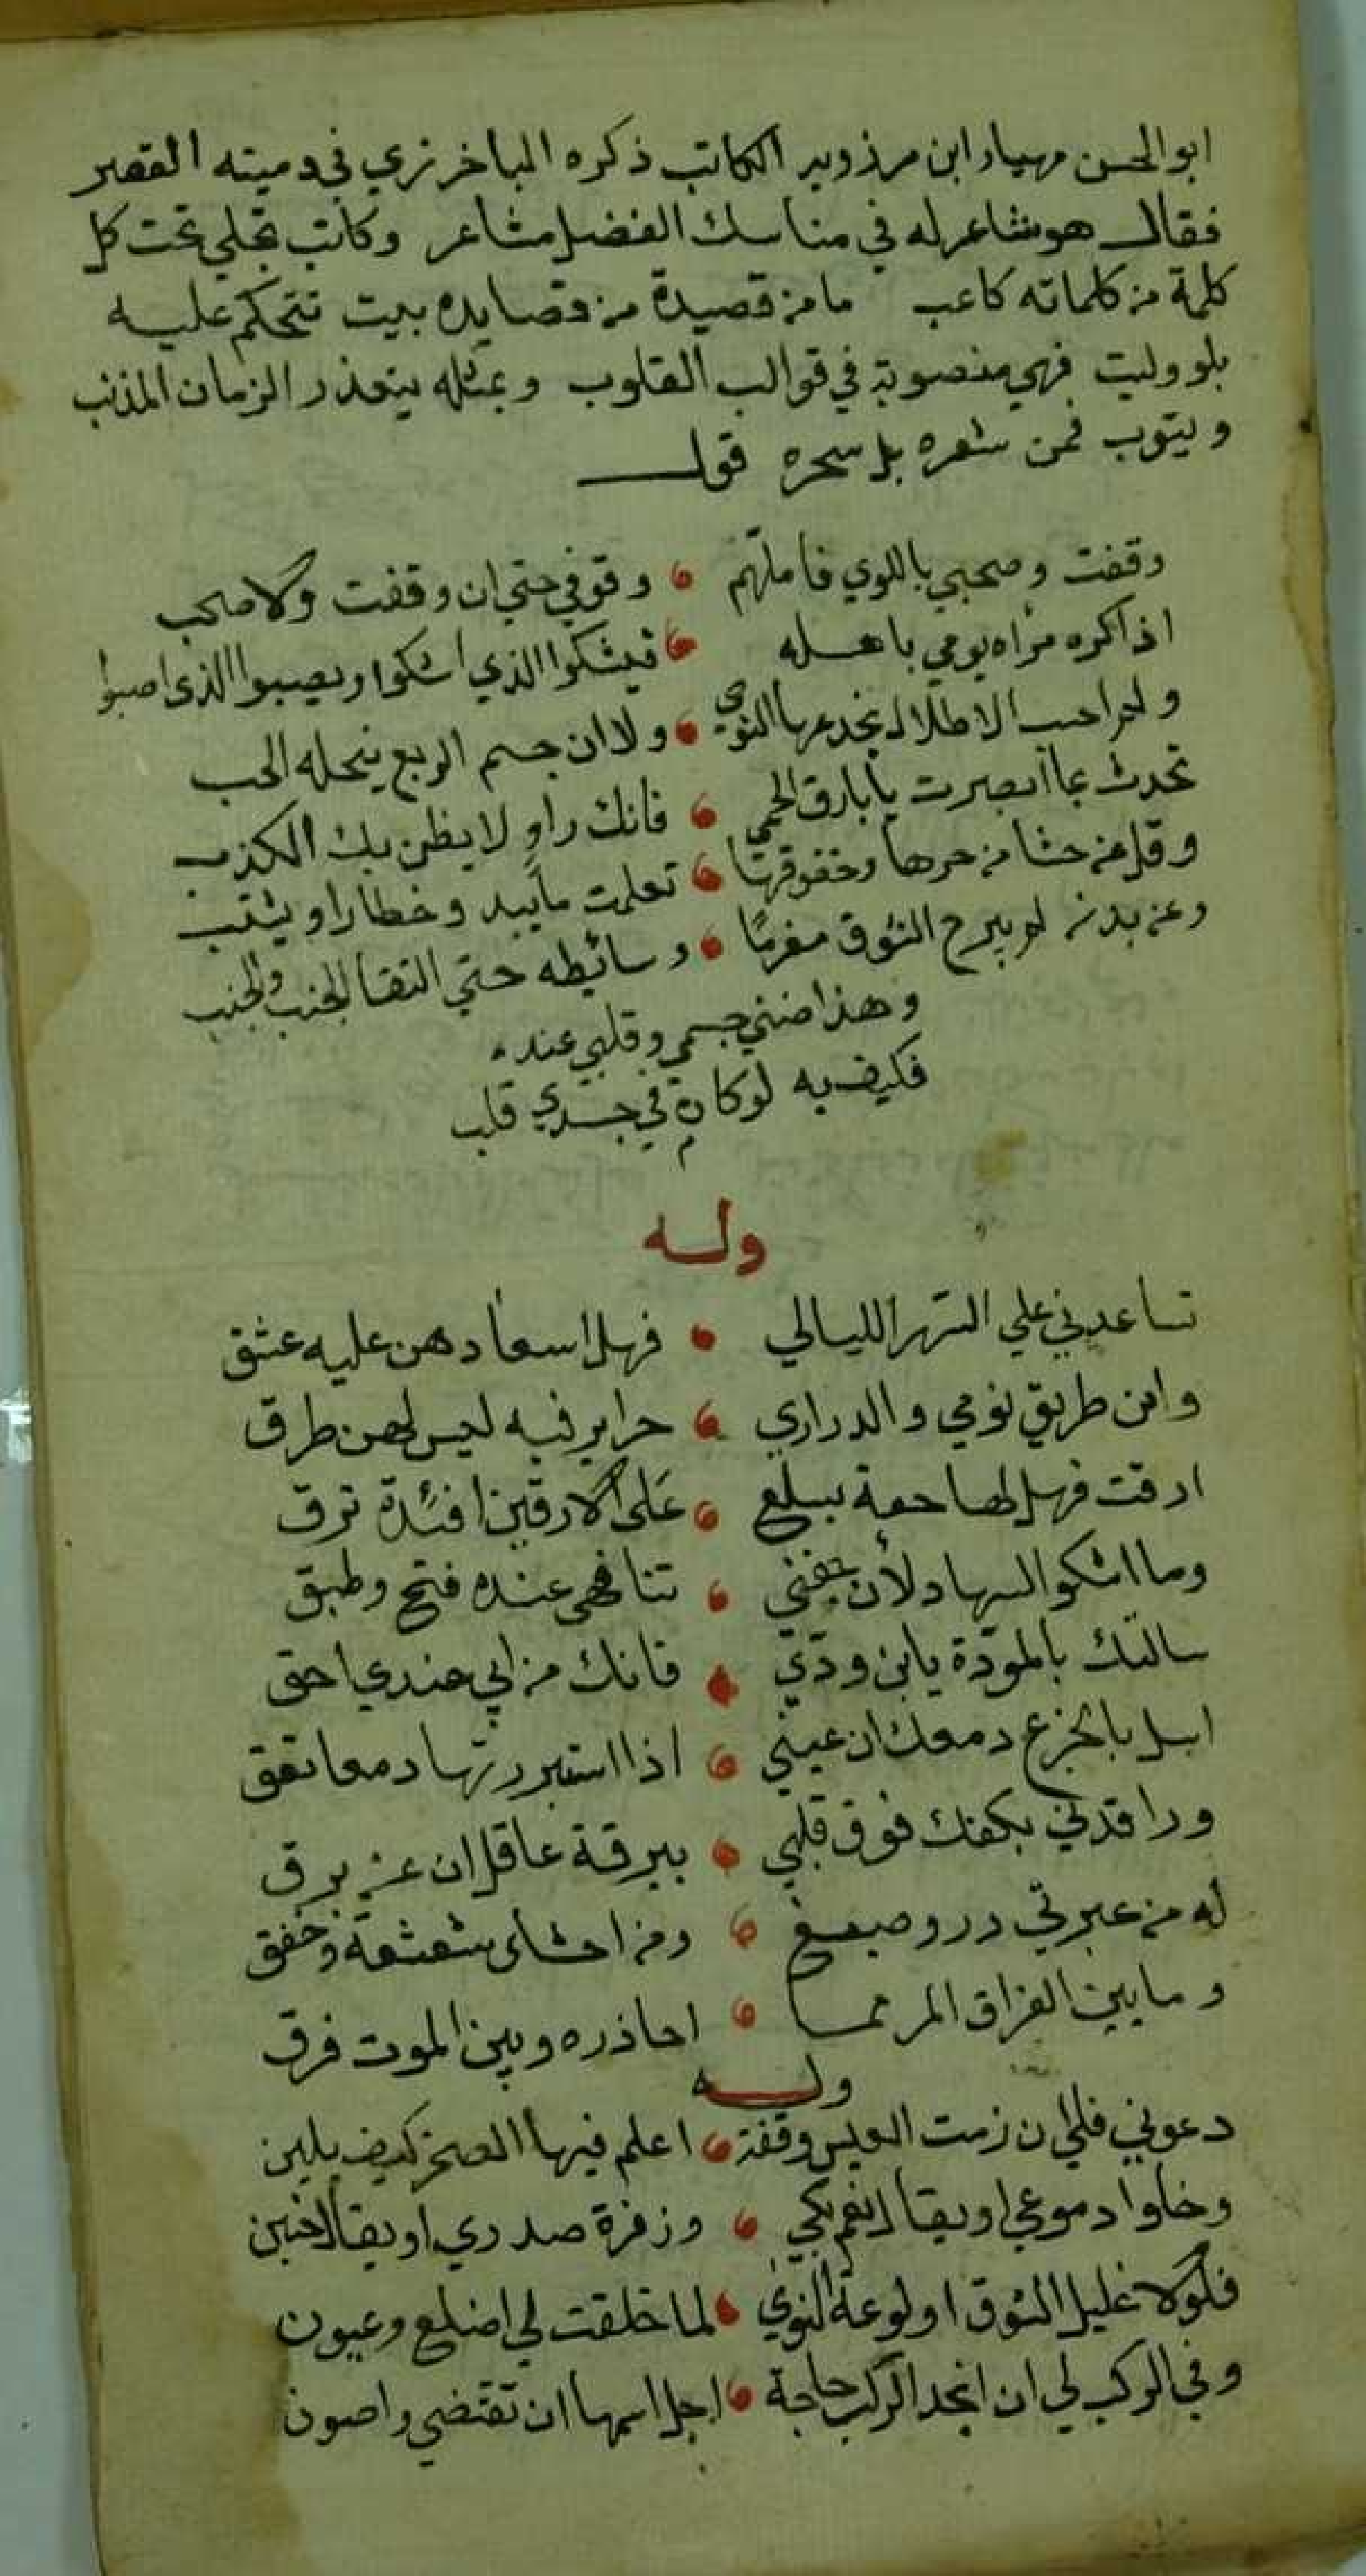 ابو الحسن مهيار ابن مرذويه الكاتب ذكره الباخرزي في دميته القصر
فقال هو شاعر له في مناسك الفضل مشاعر وكاتب تجلي تحت كل
كلمة من كلماته كاعب ما من قصيدة من قصايده بيت تتحكم عليه
بلو وليت فهي منصوبة في قوالب القلوب وبمثله يتعذر الزمان المذنب
ويتوب فمن شعره بل سحره قوله
وقفت وصحبي باللوي فاملتهم وقوفي حتي ان وقفت ولا صحب
اذاكره مرآه يومي باهله فيشكوا الذي اشكوا ويصبوا الذي اصبوا
ولم احسب الاطلال تخدعها النوي ولا ان جسم الربع ينحله الحب
تحدث بما ابصرت يا بارق الحمي فانك راو لا يظن بك الكذب
وقل عن حشا من حرها وخفوقها تعلمت ما يبد وخطارا ويشب
وعن بدن لم يبرح الشوق مغرما وسائطه حتي التقا الجنب والجنب
وهذا ضني جسمي وقلبي عنده
فكيف به لو كان في جسدي قلب
وله
تساعدني علي السهر الليالي فهل اسعادهن عليه عشق
واين طريق نومي والدراري حراير فيه ليس لهن طرق
ارقت فهل لهاجعة بسلع على الارقين افئدة ترق
وما اشكوا السهاد لأن جفني تنافي عنده فتح وطبق
سالتك بالمودة يا ابن ودي فانك من ابي عندي احق
اسل بالجزع دمعك ان عيني اذا استبررتها دمعا تعق
ورا قدني بكفك فوق قلبي ببرقة عاقل ان عن برق
له من عبرتي درر وصبغ ومن احشاى شعشعة وخفق
وما بين الفراق المر مما احاذره وبين الموت فرق
وله
دعوني فلي ان زمت العيس وقفة اعلم فيها الصخر كيف يلين
وخلوا دموعي او يقال نعم بكي وزفرة صدري او يقال حنين
فلولا غليل الشوق او لوعة النوي لما خلقت لي اضلع وعيون
وفي الركب لي ان انجد الركب حاجة اجل اسمها ان تقتضي واصون